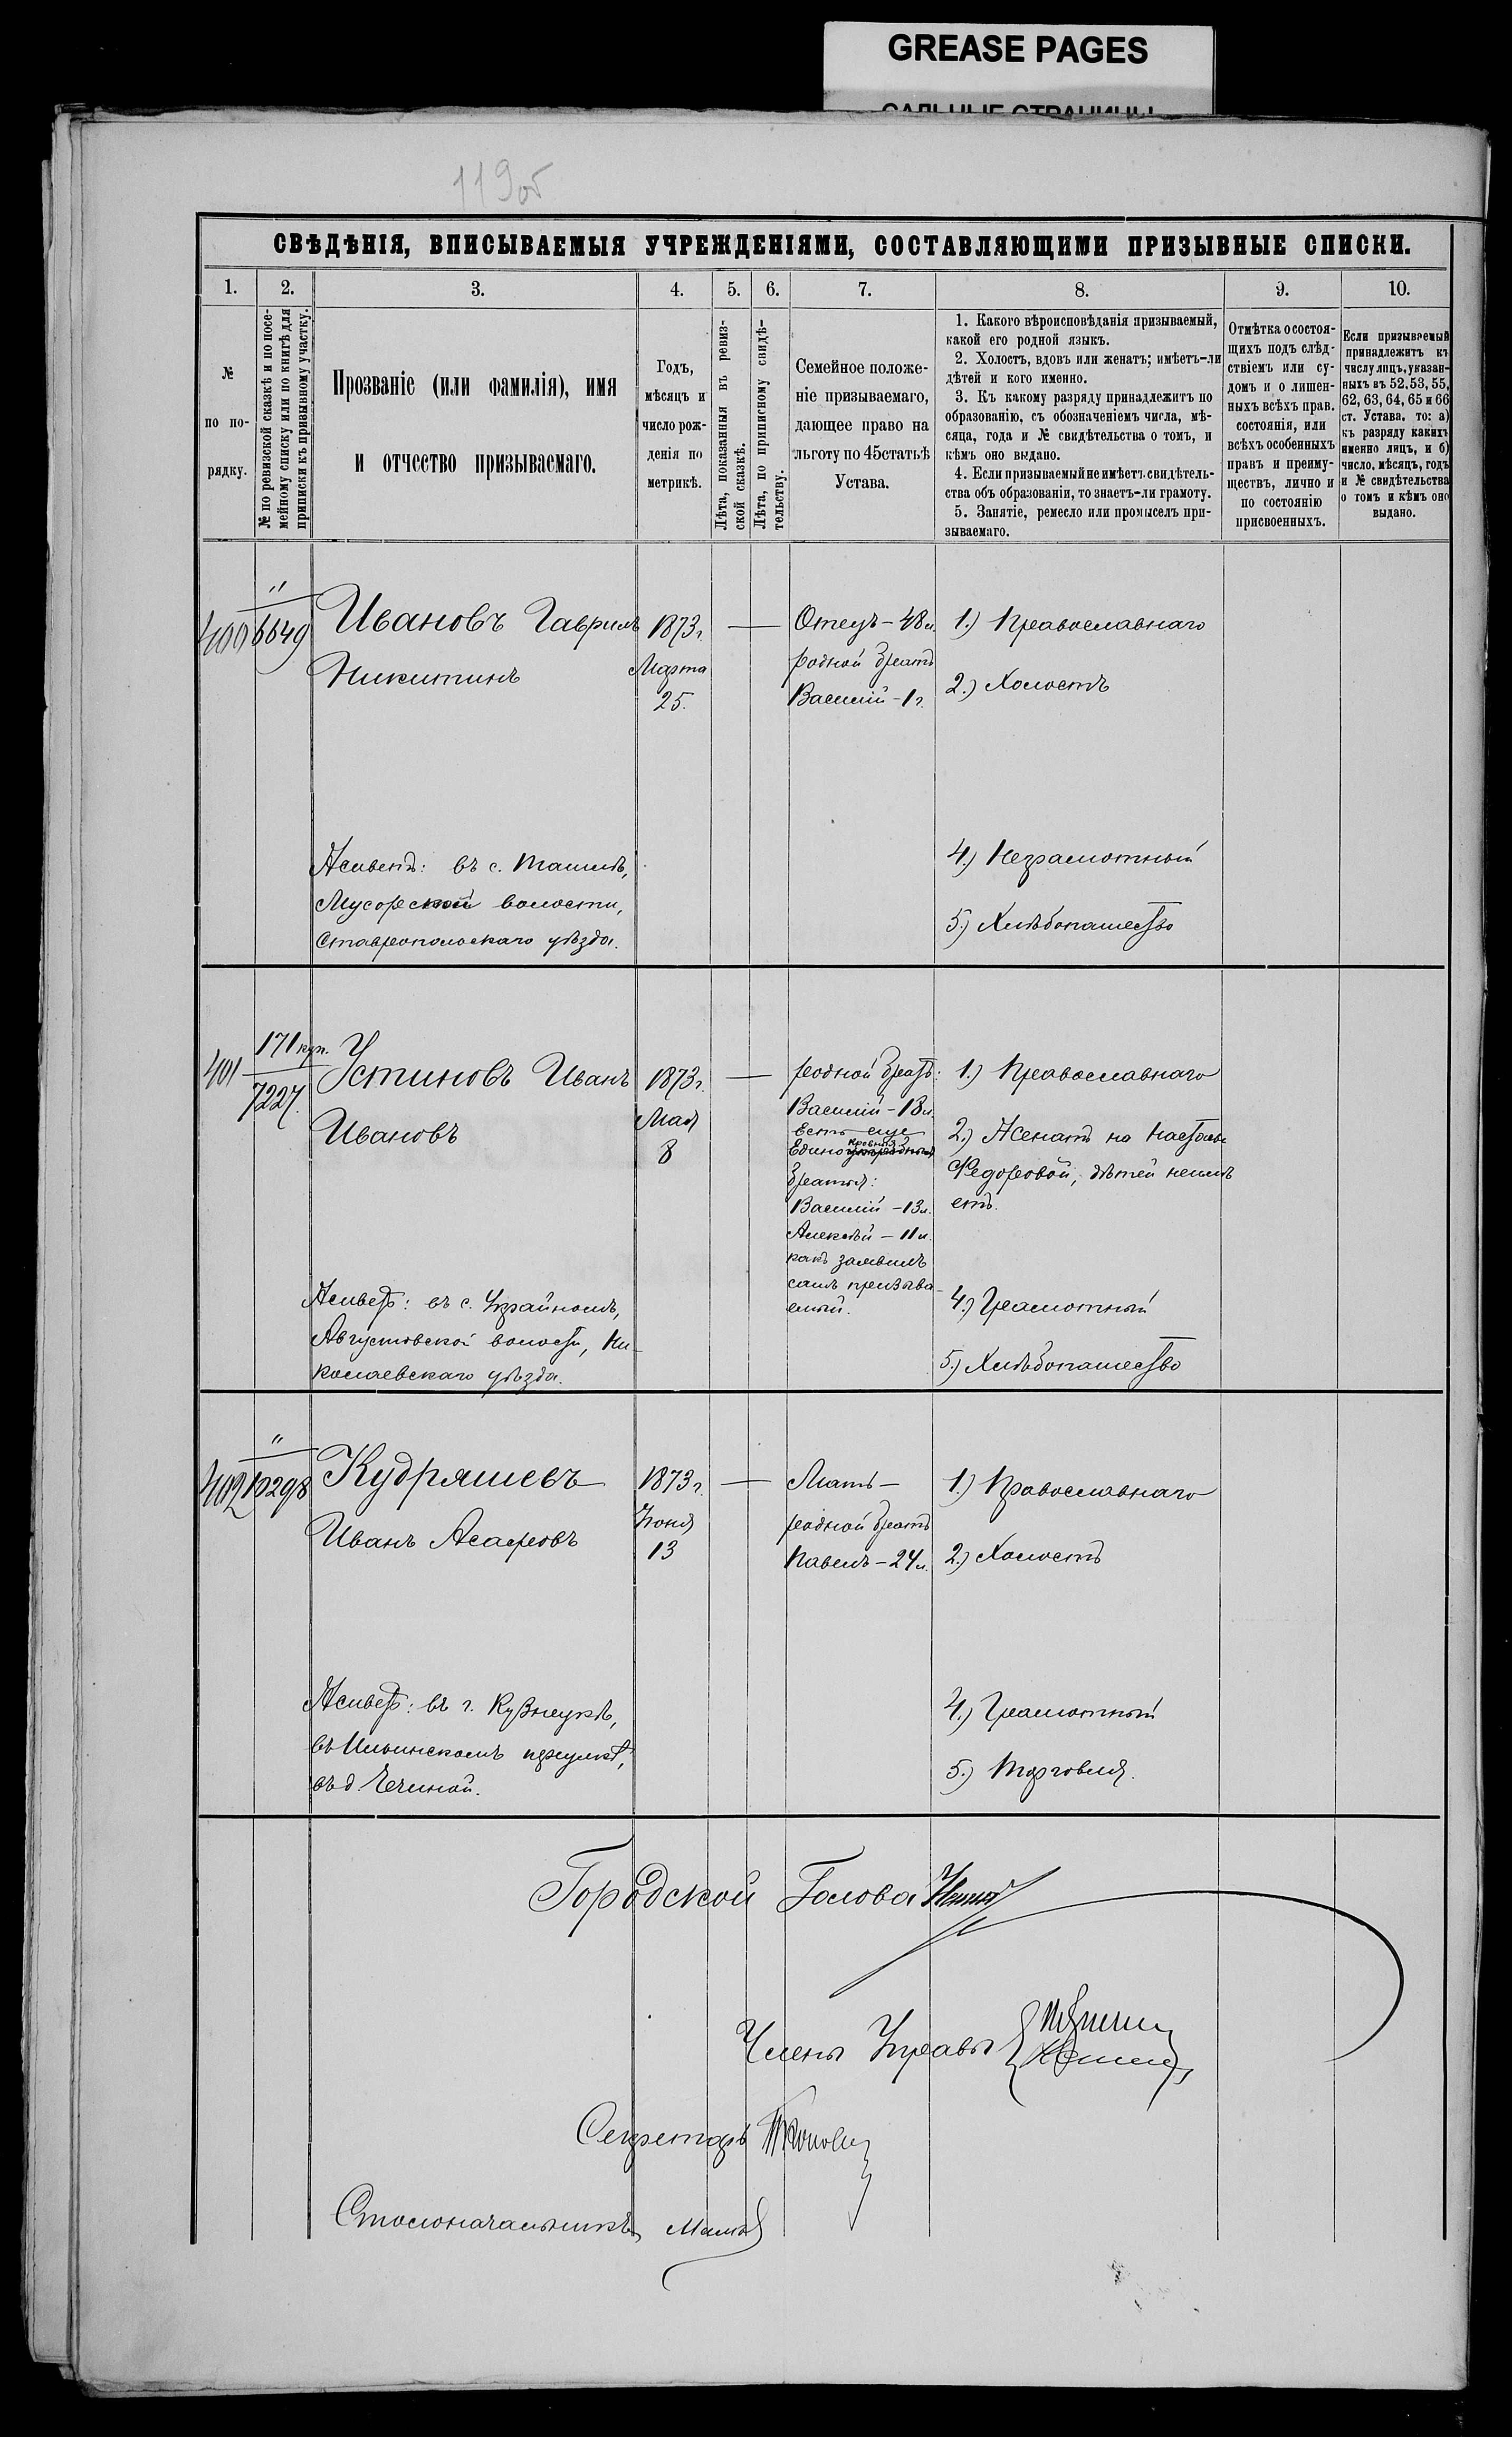 GREASE PAGES
САЛЬНЫЕ СТРАНИЦЫ
119об
СВѢДѢНІЯ, ВПИСЫВАЕМЫЯ УЧРЕЖДЕНІЯМИ, СОСТАВЛЯЮЩИМИ ПРИЗЫВНЫЕ СПИСКИ.
1. 2. 3. 4. 5. 6. 7. 8. 9. 10.
№
по по-
рядку.
№ по ревизской сказкѣ и по посе-
мейному списку или по книгѣ для
приписки къ призывному участку.
Прозваніе (или фамилія), имя
и отчество призываемаго.
Годъ,
мѣсяцъ и
число рож-
денія по
метрикѣ.
Лѣта, показанныя въ ревиз-
ской сказкѣ.
Лѣта, по приписному свидѣ-
тельству.
Семейное положе-
ніе призываемаго,
дающее право на
льготу по 45 статьѣ
Устава.
1. Какого вѣроисповѣданія призываемый,
какой его родной языкъ.
2. Холостъ, вдовъ или женатъ; имѣетъ-ли
дѣтей и кого именно.
3. Къ какому разряду принадлежитъ по
образованію, съ обозначеніемъ числа, мѣ-
сяца, года и № свидѣтельства о томъ, и
кѣмъ оно выдано.
4. Если призываемый не имѣетъ свидѣтель-
ства объ образованіи, то знаетъ-ли грамоту.
5. Занятіе, ремесло или промыселъ при-
зываемаго.
Отмѣтка о состоя-
щихъ подъ слѣд-
ствіемъ или су-
домъ и о лишен-
ныхъ всѣхъ прав.
состоянія, или
всѣхъ особенныхъ
правъ и преиму-
ществъ, лично и
по состоянію
присвоенныхъ.
Если призываемый
принадлежитъ къ
числу лицъ, указан-
ныхъ въ 52, 53, 55,
62, 63, 64, 65 и 66
ст. Устава, то: а)
къ разряду какихъ
именно лицъ, и б)
число, мѣсяцъ, годъ
и № свидѣтельства
о томъ и кѣмъ оно
выдано.
400
"
6649
Ивановъ Гаврилъ
Никитинъ
1873 г.
Марта
25.
—
Отецъ - 48 л.
родной братъ
Василій - 1 г.
1.) Православнаго
2.) Холостъ
4.) Неграмотный
5.) Хлѣбопашество
Живетъ: въ с. Ташлѣ,
Мусорской волости,
Ставропольскаго уѣзда.
401
171 куп.
7227.
Устиновъ Иванъ
Ивановъ
1873 г.
Мая
8
—
родной братъ:
Василій - 18 л.
Есть еще
кровные
Едино
братья:
Василій - 13 л.
Алексѣй - 11 л.
какъ заявилъ
самъ призыва-
емый.
1.) Православнаго
2.) Женатъ на Настасьѣ
Федоровой, дѣтей неимѣ
етъ.
4.) Грамотный
5.) Хлѣбопашество
Живетъ: въ с. Украйномъ,
Августовской волости, Ни-
колаевскаго уѣзда.
402
"
10298
Кудряшевъ
Иванъ Асафовъ
1873 г.
Іюня
13
—
Мать —
родной братъ
Павелъ - 24 л.
1.) Православнаго
2.) Холостъ
4.) Грамотный
5.) Торговля.
Живетъ: въ г. Кузнецкѣ,
въ Ильинскомъ переулкѣ,
въ д.
Городской Голова
Члены Управы
Секретарь
Столоначальникъ